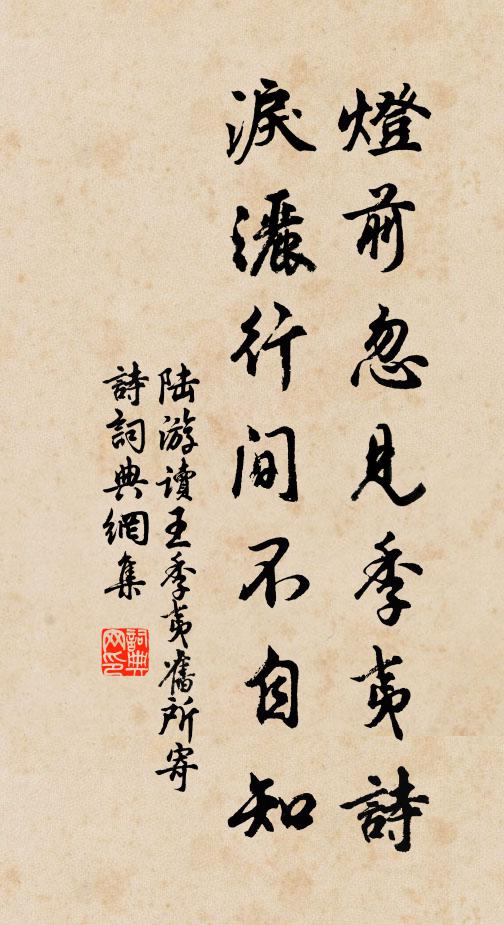 燈前忽見季夷詩
淚灑行間不自知
陆游讀王季夷舊所寄
詩詞典網集
詞典网印